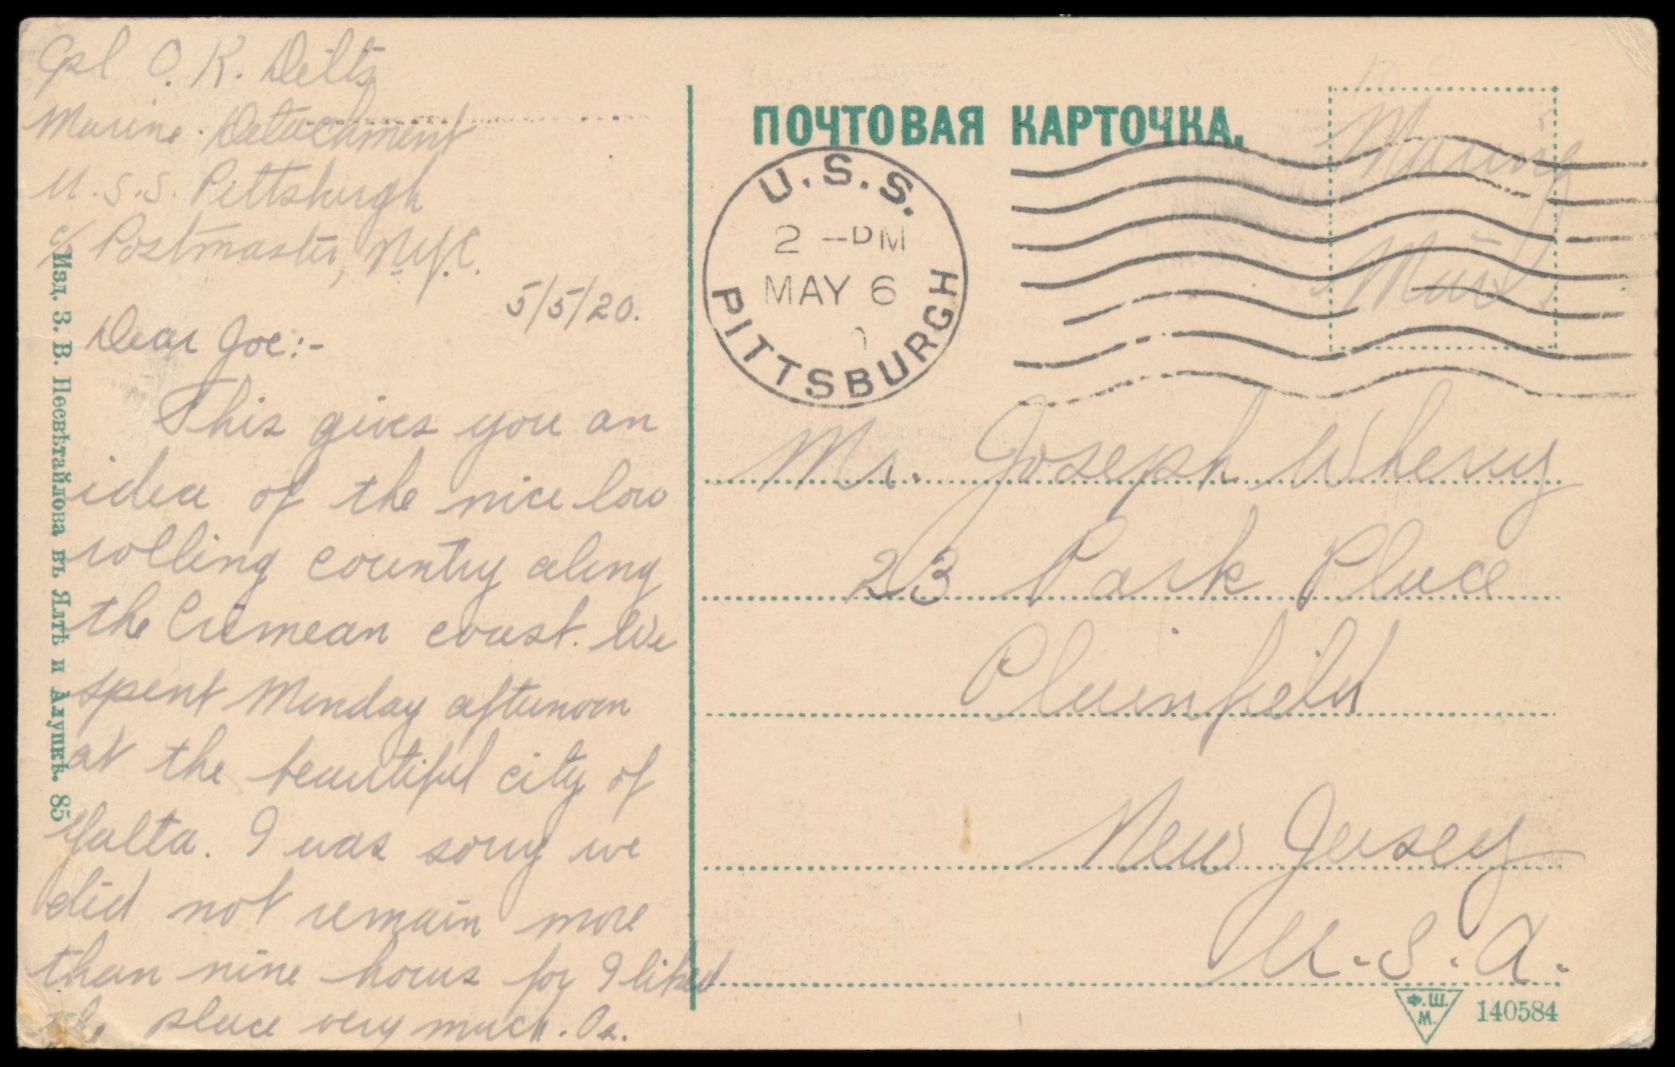 Cpl O. K. Dilts
Marine Detachment
U.S.S. Pittsburgh
c/o Postmaster, N.Y.C.
5/5/20.
Dear Joe:-
This gives you an
idea of the nice low
rolling country along
the Crimean coast. We
spent Monday afternoon
at the beautiful city of
Yalta. I was sorry we
did not remain more
than nine hours for I liked
the place very much. Os.
Изд. З. В. Несвѣтайлова въ Ялтѣ и Алупкѣ. 85
ПОЧТОВАЯ КАРТОЧКА.
U.S.S.
2 –PM
MAY 6
PITTSBURGH
Marine
Mail.
Mr. Joseph Wherry
23 Park Place
Plainfield
New Jersey
U.S.A.
Ф.Ш.
М.
140584